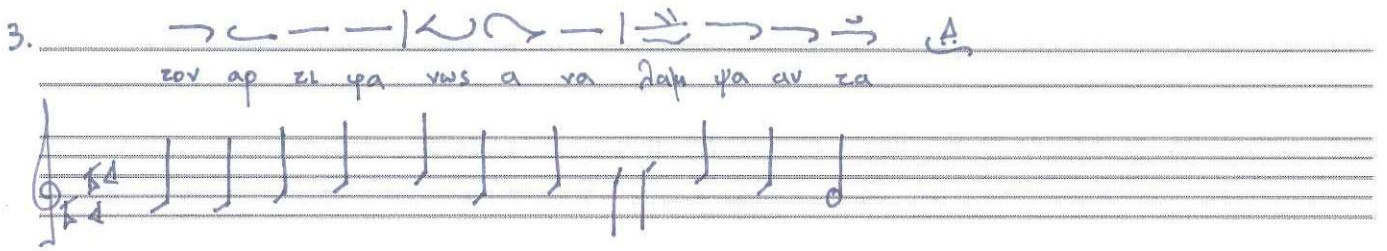 3.
τον αρ τι φα νως α να λαμ ψα αν τα